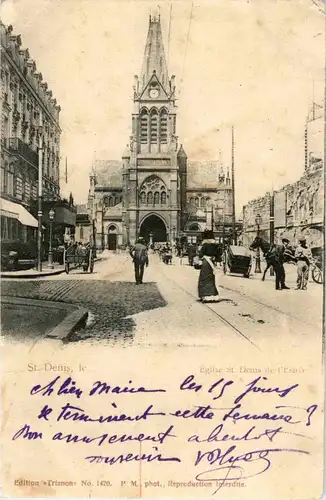 St. Denis, le
Eglise St. Denis de l'Estrée
chien Marie les 15 jours
se terminent cette semaine?
Bon amusement a bientot
souvenir
Edition «Trianon» No. 1420. P. M., phot., Réproduction interdite.